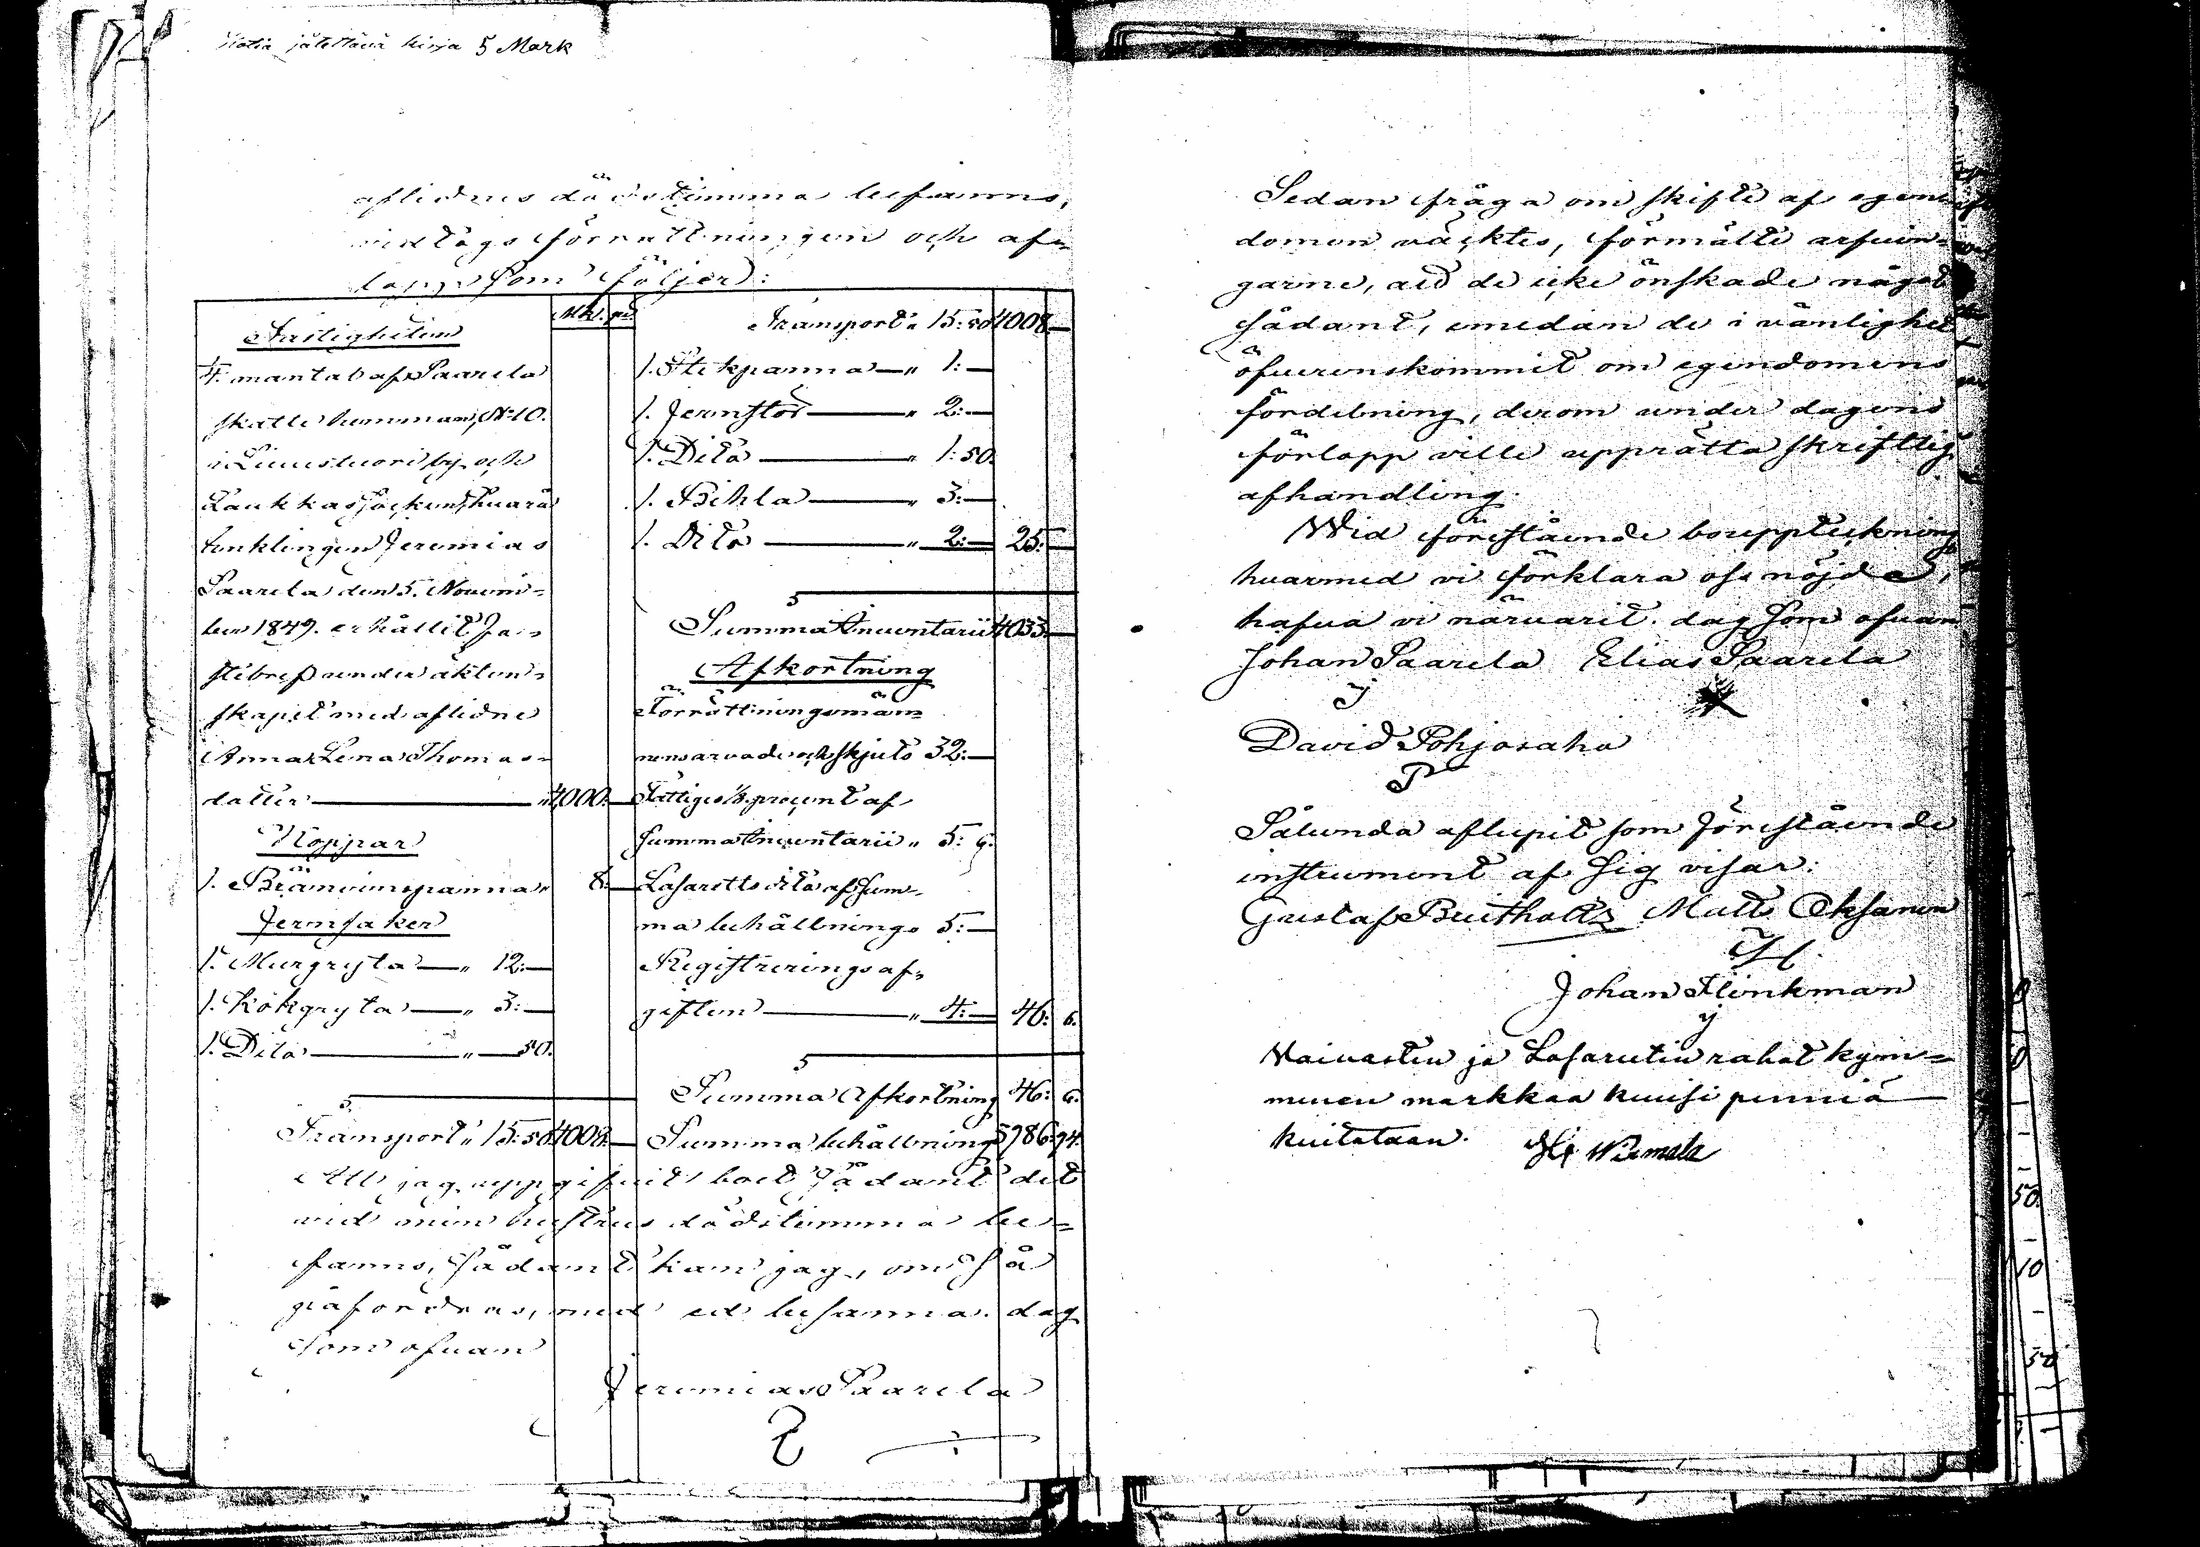 jätettävä kirja 5 Mark
aflidnes dödstimma befanns,
vidtogs förrättningen och af=
lopp som följer:
Mk. pi.
Fastigheten
mantal af Paarela
skatte hemman, N:o 10.
i by och
hvarå
enklingen Jeremias
Paarela den 5. Novem=
ber 1849. erhållit fa=
stebref under äkten=
skapet med aflidne
Anna Lena Thomas=
dotter — 4000:—
Koppar
1. Bränvinspanna „ 8:—
Jernsaker
1. Murgryta — „ 12:—
1. Kokgryta — „ 3:—
1. Dito — „ — 50.
Transport „ 15:50 4008:—
Transport „ 15:50 4008:—
1. Stekpanna — „ 1:—
1. Jernstör — „ 2:—
1. Dito — „ 1:50.
1. Bihla — „ 3:—
1. Dito — „ 2:— 25:—
Summa Inventarii 4033:—
Afkortning
Förrättningsmän=
nens arvode och skjuts 32:—
Fattiges 1/8 procent af
summa Inventarii „ 5: 6.
Lasaretts dito af sum=
ma behållning „ 5:—
Registreringsaf=
giften — „ 4:— 46: 6.
Summa Afkortning 46: 6.
Summa behållning 3986:94.
Att jag uppgifvit boet sådant det
vid min hustrus dödstimma be=
fanns, sådant kan jag, om så
påfordras, med ed besanna. dag
som ofvan
Jeremias Paarela
Sedan fråga om skifte af egen=
domen väcktes, förmälte arfvin=
garne, att de icke önskade något
sådant, emedan de i vänlighet
öfverenskommit om egendomens
fördelning, derom under dagens
förlopp ville upprätta skriftlig
afhandling.
Wid förestående bouppteckning
hvarmed vi förklara oss nöjde,
hafva vi närvarit. dag som ofvan
Johan Paarela Elias Paarela
David Pohjosaho
P
Sålunda aflupit som förestående
instrument af sig visar:
Gustaf Buchholtz Matts Oksanen
Johan Flinkman
Waivasten ja Lasaretin rahat kym=
menen markkaa kuusi penniä
kuitataan. Wiemola